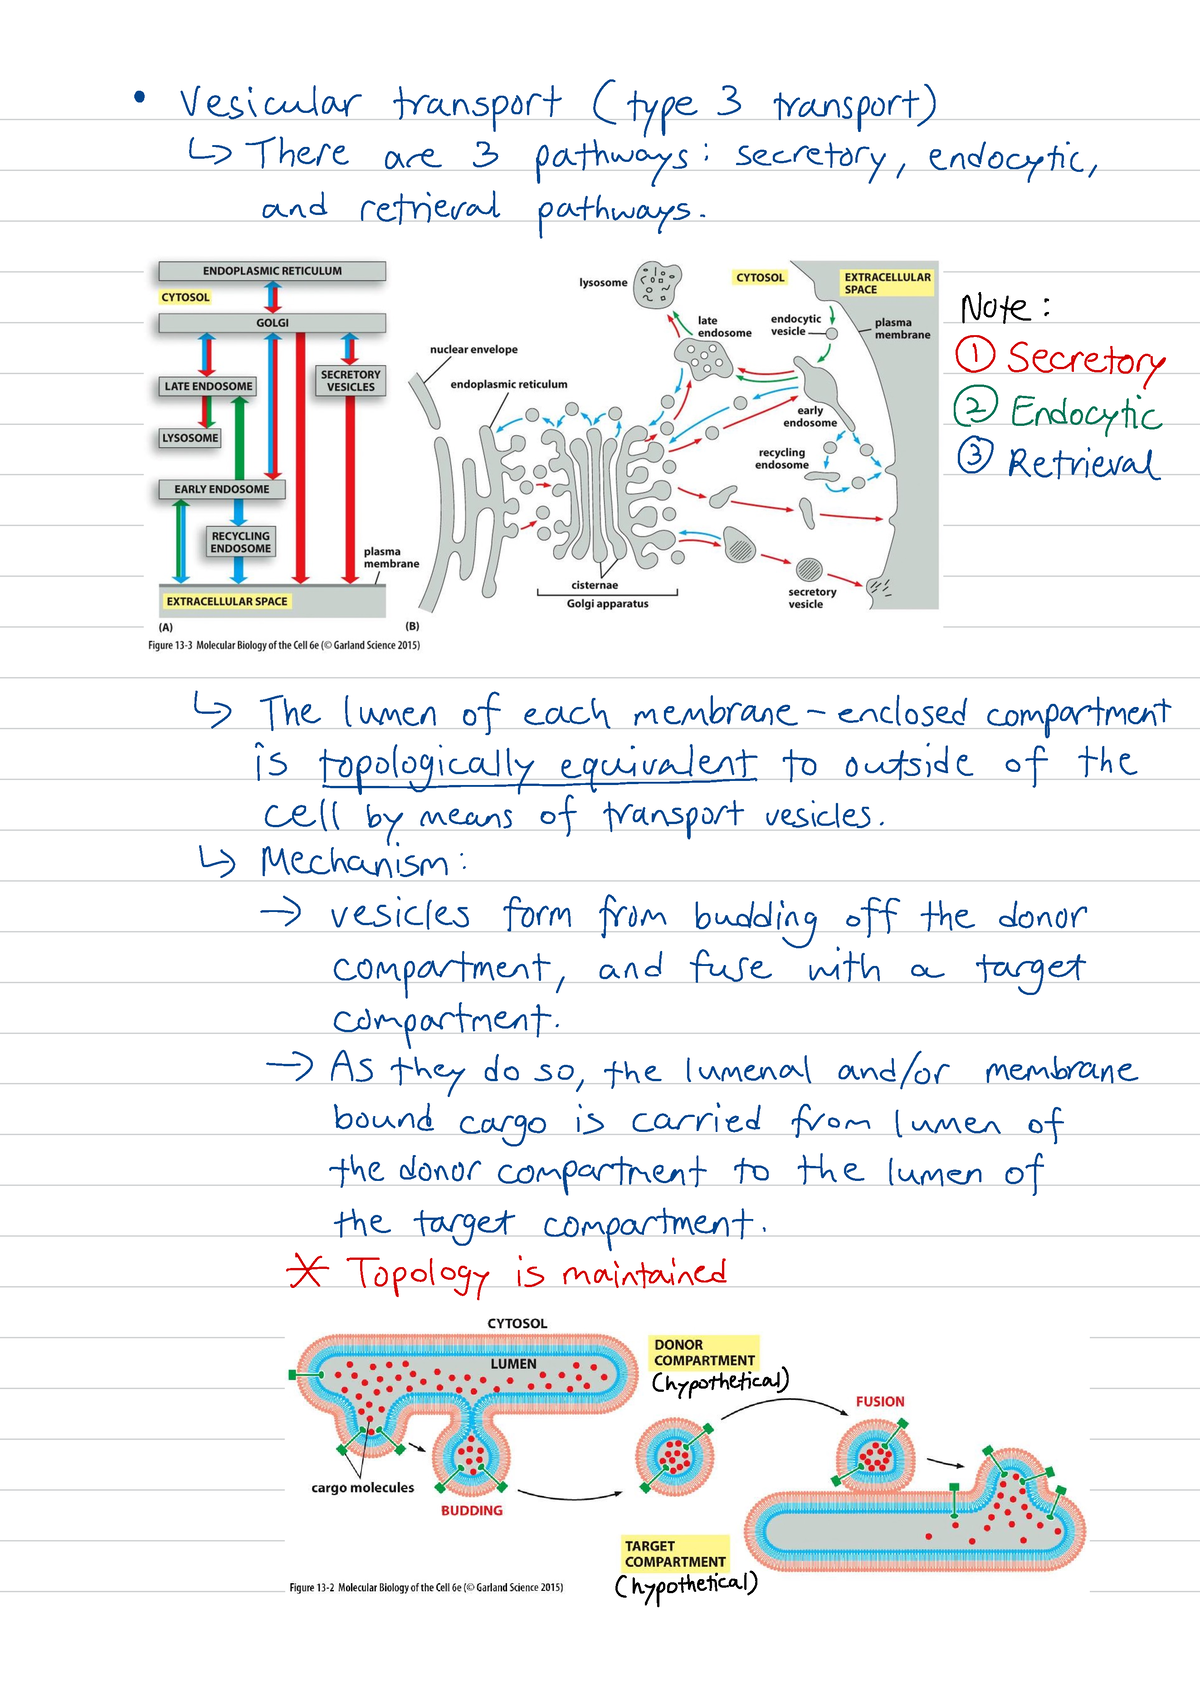 • Vesicular transport (type 3 transport)
↳ There are 3 pathways: secretory, endocytic,
and retrieval pathways.
ENDOPLASMIC RETICULUM
CYTOSOL
GOLGI
LATE ENDOSOME
SECRETORY
VESICLES
LYSOSOME
EARLY ENDOSOME
RECYCLING
ENDOSOME
plasma
membrane
EXTRACELLULAR SPACE
(A)
lysosome
CYTOSOL
EXTRACELLULAR
SPACE
late
endosome
endocytic
vesicle
plasma
membrane
nuclear envelope
endoplasmic reticulum
early
endosome
recycling
endosome
cisternae
Golgi apparatus
secretory
vesicle
(B)
Figure 13-3 Molecular Biology of the Cell 6e (© Garland Science 2015)
Note:
① Secretory
② Endocytic
③ Retrieval
↳ The lumen of each membrane-enclosed compartment
is topologically equivalent to outside of the
cell by means of transport vesicles.
↳ Mechanism:
→ vesicles form from budding off the donor
compartment, and fuse with a target
compartment.
→ As they do so, the lumenal and/or membrane
bound cargo is carried from lumen of
the donor compartment to the lumen of
the target compartment.
* Topology is maintained
CYTOSOL
LUMEN
DONOR
COMPARTMENT
(hypothetical)
FUSION
cargo molecules
BUDDING
TARGET
COMPARTMENT
(hypothetical)
Figure 13-2 Molecular Biology of the Cell 6e (© Garland Science 2015)